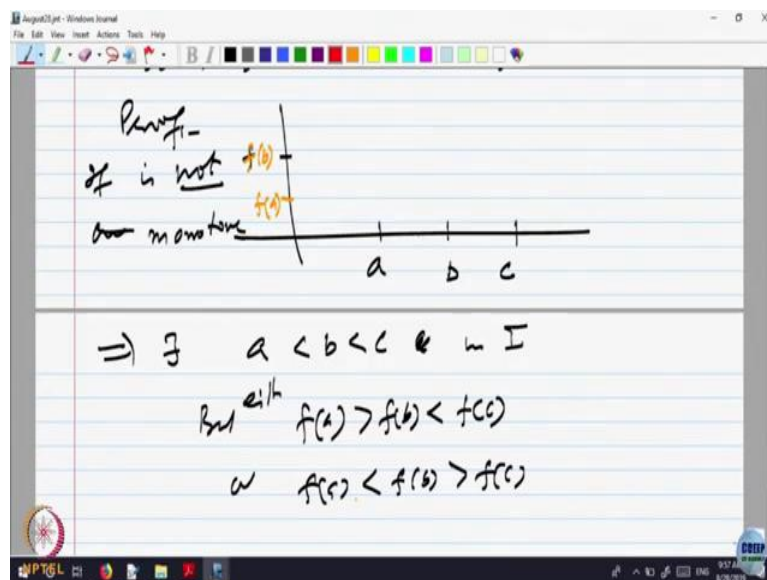 August28.jnt - Windows Journal
File Edit View Insert Actions Tools Help
Proof-
If is not
monotone
f(b)
f(a)
a b c
⇒ ∃ a < b < c in I
But either f(a) > f(b) < f(c)
or f(c) < f(b) > f(c)
NPTEL
ENG